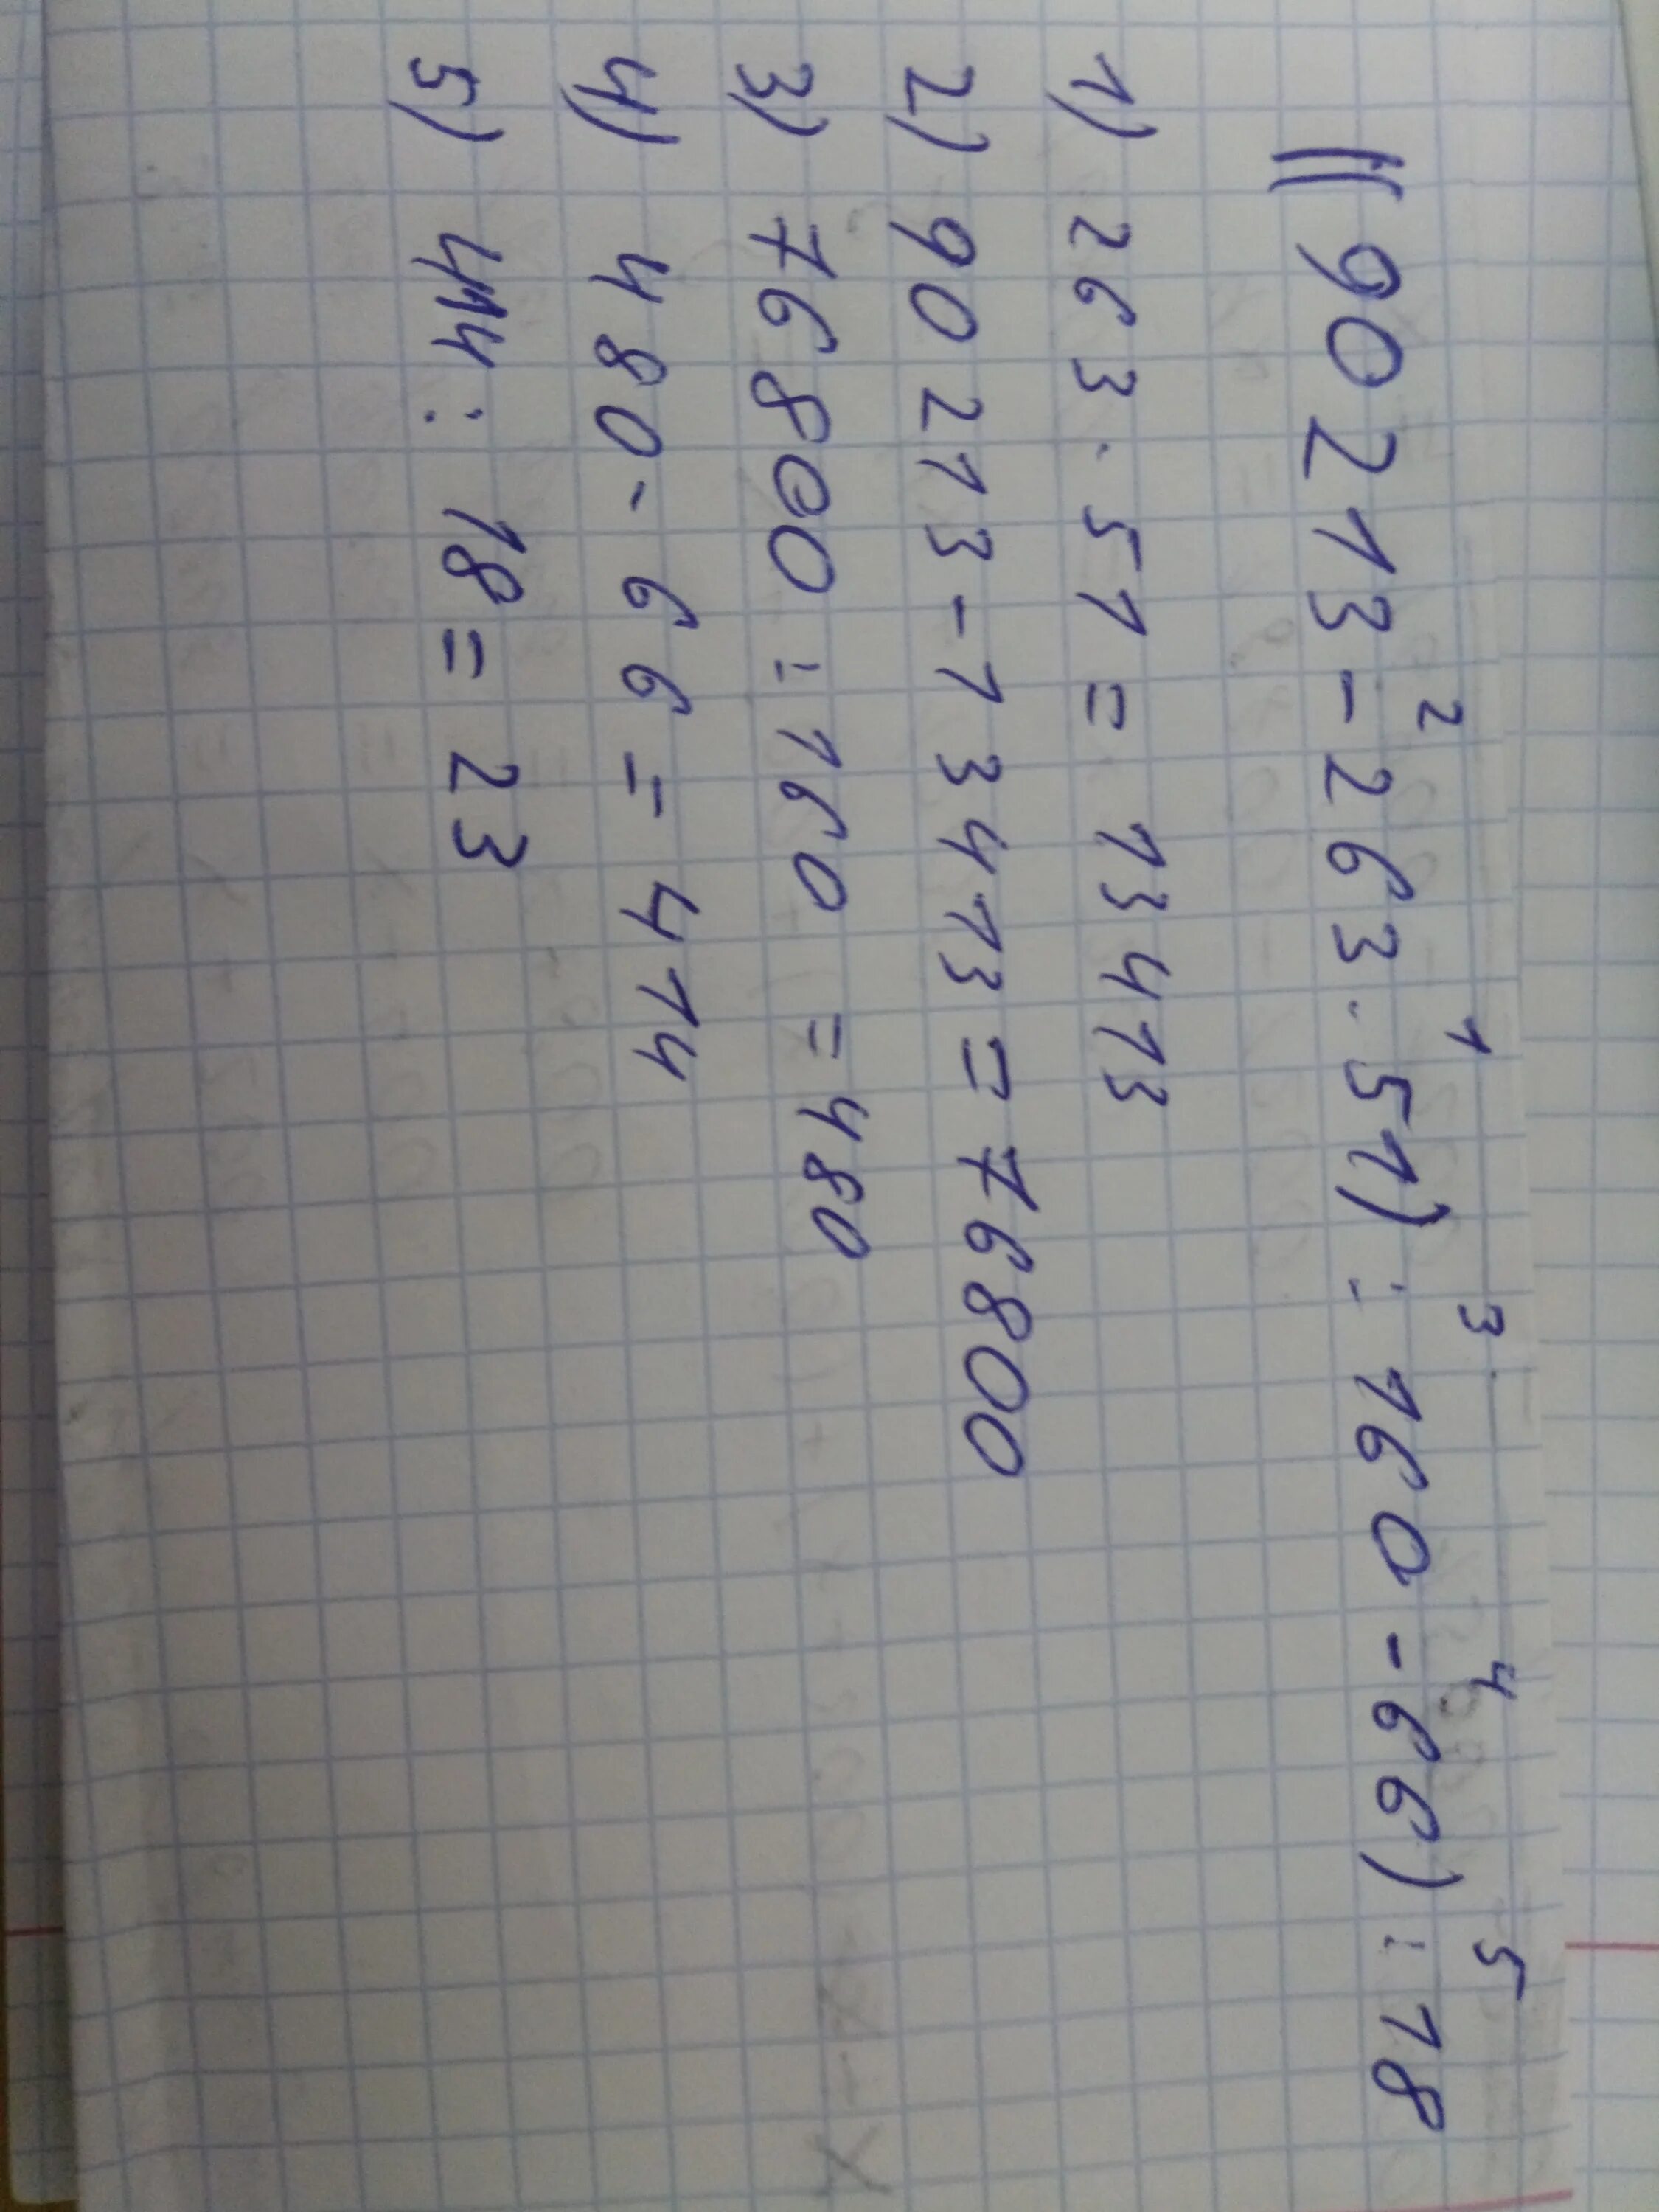 2 1 3 4 5
((90213-263·51):160-66):18
1) 263·51=13413
2) 90213-13413=76800
3) 76800:160=480
4) 480-66=414
5) 414:18=23